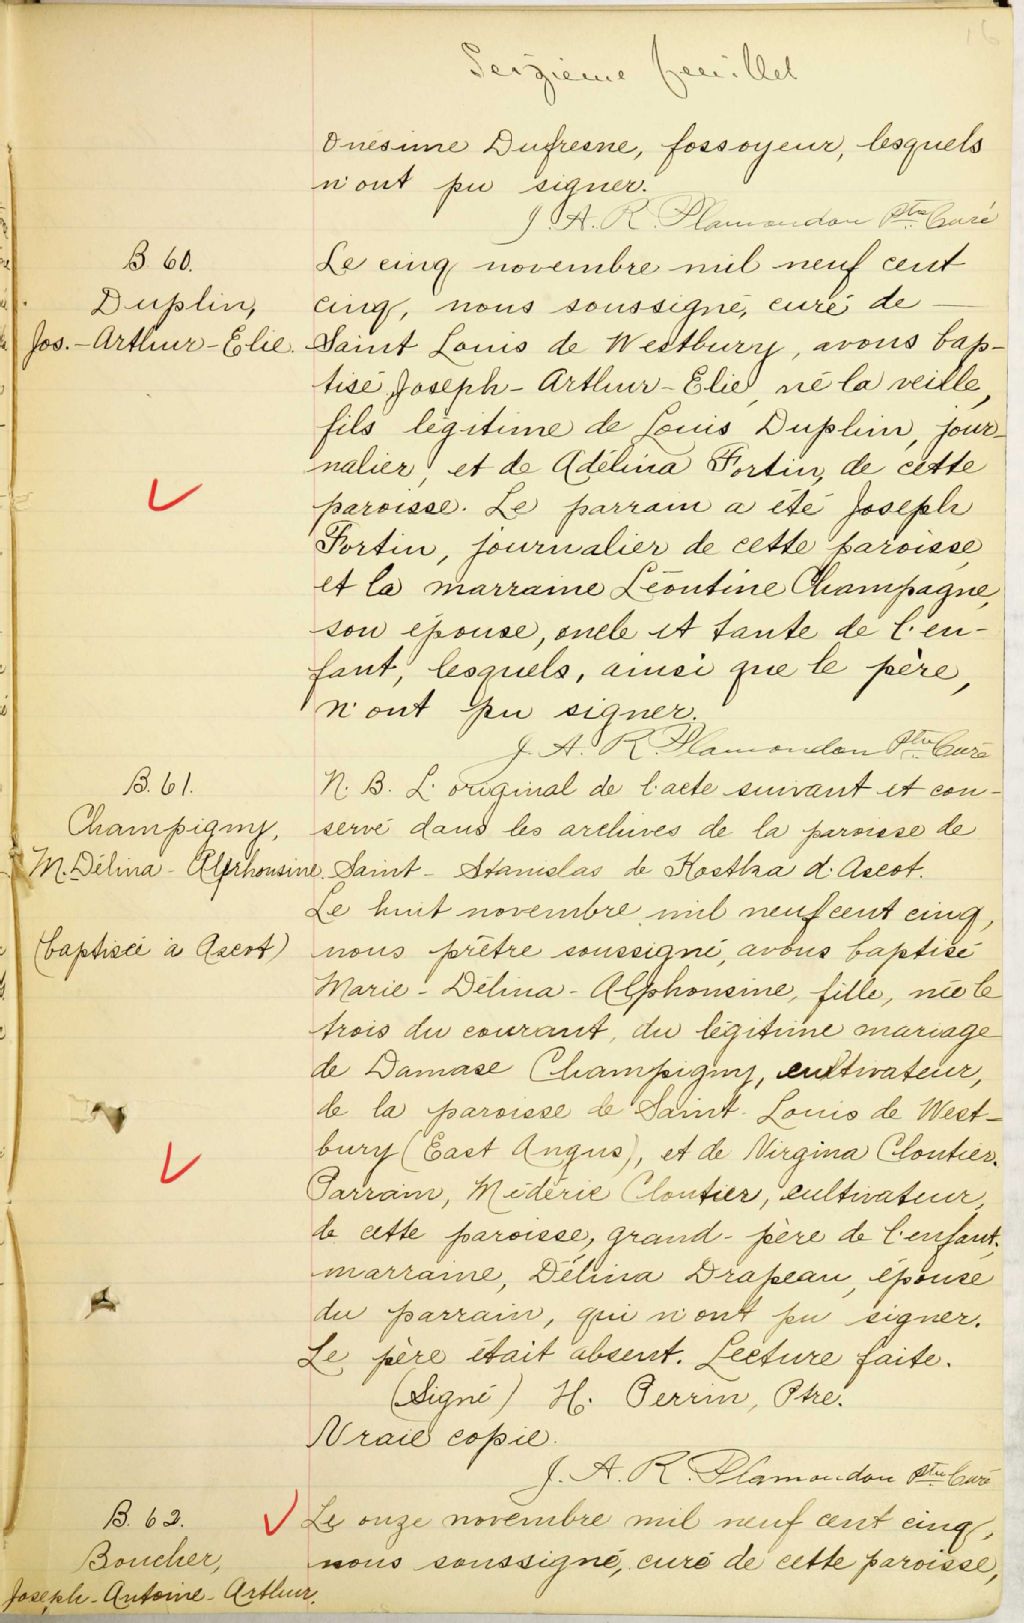 16
Seizième feuillet
Onésime Dufresne, fossoyeur, lesquels
n'ont pu signer.
J. A. R. Plamondon Ptre Curé
B. 60.
Duplin,
Jos.-Arthur-Elie.
Le cinq novembre mil neuf cent
cinq, nous soussigné, curé de
Saint Louis de Westbury, avons bap-
tisé Joseph-Arthur-Elie, né la veille,
fils légitime de Louis Duplin, jour-
nalier, et de Adélina Fortin, de cette
paroisse. Le parrain a été Joseph
Fortin, journalier de cette paroisse
et la marraine Léontine Champagne,
son épouse, oncle et tante de l'en-
fant, lesquels, ainsi que le père,
n'ont pu signer.
J. A. R. Plamondon Ptre Curé
B. 61.
Champigny,
M. Délina-Alphonsine.
(baptisée à Ascot)
N. B. L'original de l'acte suivant et con-
servé dans les archives de la paroisse de
Saint-Stanislas de Kostka d'Ascot.
Le huit novembre mil neuf cent cinq,
nous prêtre soussigné, avons baptisé
Marie-Délina-Alphonsine, fille, née le
trois du courant, du légitime mariage
de Damase Champigny, cultivateur,
de la paroisse de Saint-Louis de West-
bury (East Angus), et de Virgina Cloutier.
Parrain, Médéric Cloutier, cultivateur,
de cette paroisse, grand-père de l'enfant;
marraine, Délina Drapeau, épouse
du parrain, qui n'ont pu signer.
Le père était absent. Lecture faite.
(Signé) H. Perrin, Ptre.
Vraie copie.
J. A. R. Plamondon Ptre Curé
B. 62.
Boucher,
Joseph-Antoine-Arthur.
Le onze novembre mil neuf cent cinq,
nous soussigné, curé de cette paroisse,